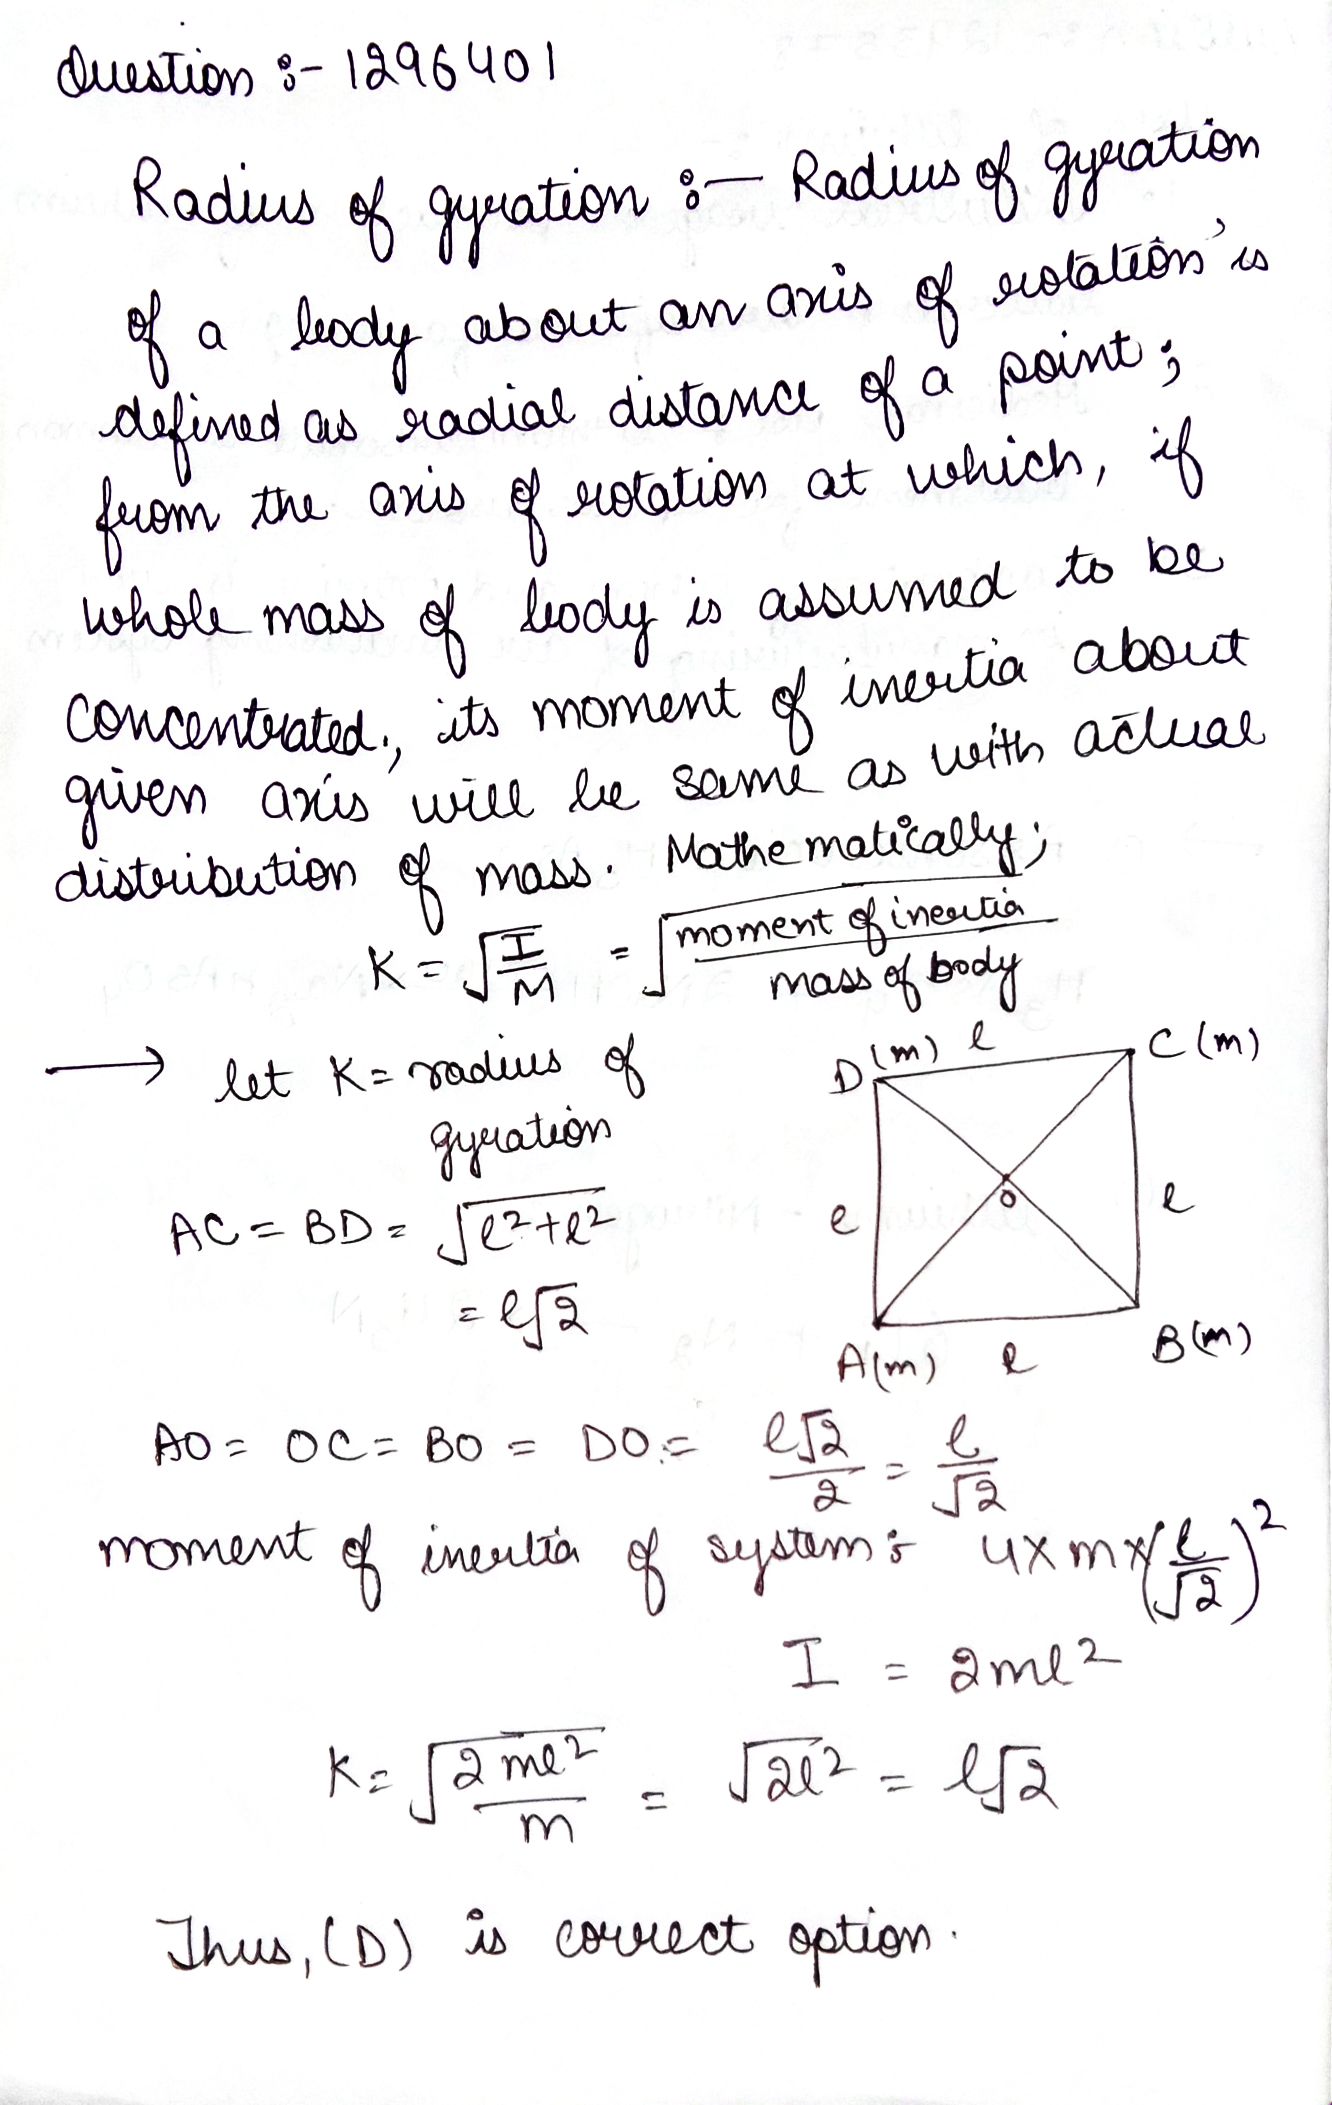 Question :- 1296401
Radius of gyration :- Radius of gyration
of a body about an axis of rotation is
defined as radial distance of a point;
from the axis of rotation at which, if
whole mass of body is assumed to be
concentrated, its moment of inertia about
given axis will be same as with actual
distribution of mass. Mathematically;
K = √(I/M) = √(moment of inertia/mass of body)
→ let K = radius of
gyration
D(m) l C(m)
l o l
A(m) l B(m)
AC = BD = √(l²+l²)
= l√2
AO = OC = BO = DO = l√2/2 = l/√2
moment of inertia of system: 4×m×(l/√2)²
I = 2ml²
K = √(2ml²/m) = √2l² = l√2
Thus, (D) is correct option.